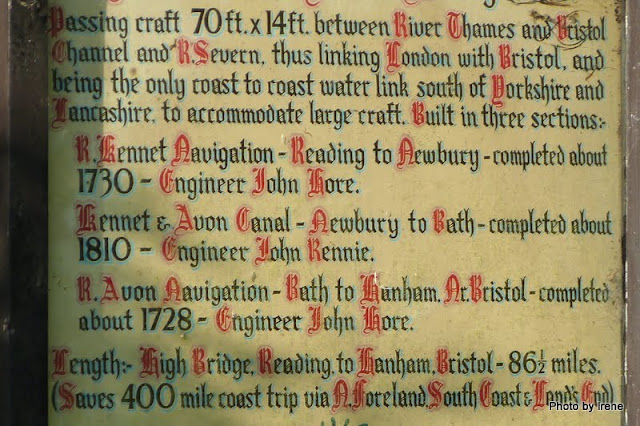 Passing craft 70ft. x 14ft. between River Thames and Bristol
Channel and R. Severn, thus linking London with Bristol, and
being the only coast to coast water link south of Yorkshire and
Lancashire, to accommodate large craft. Built in three sections:-
R. Kennet Navigation - Reading to Newbury - completed about
1730 - Engineer John Hore.
Kennet & Avon Canal - Newbury to Bath - completed about
1810 - Engineer John Rennie.
R. Avon Navigation - Bath to Hanham, Nr. Bristol - completed
about 1728 - Engineer John Hore.
Length:- High Bridge, Reading, to Hanham, Bristol - 86½ miles.
(Saves 400 mile coast trip via N. Foreland, South Coast & Land's End)
Photo by Irene